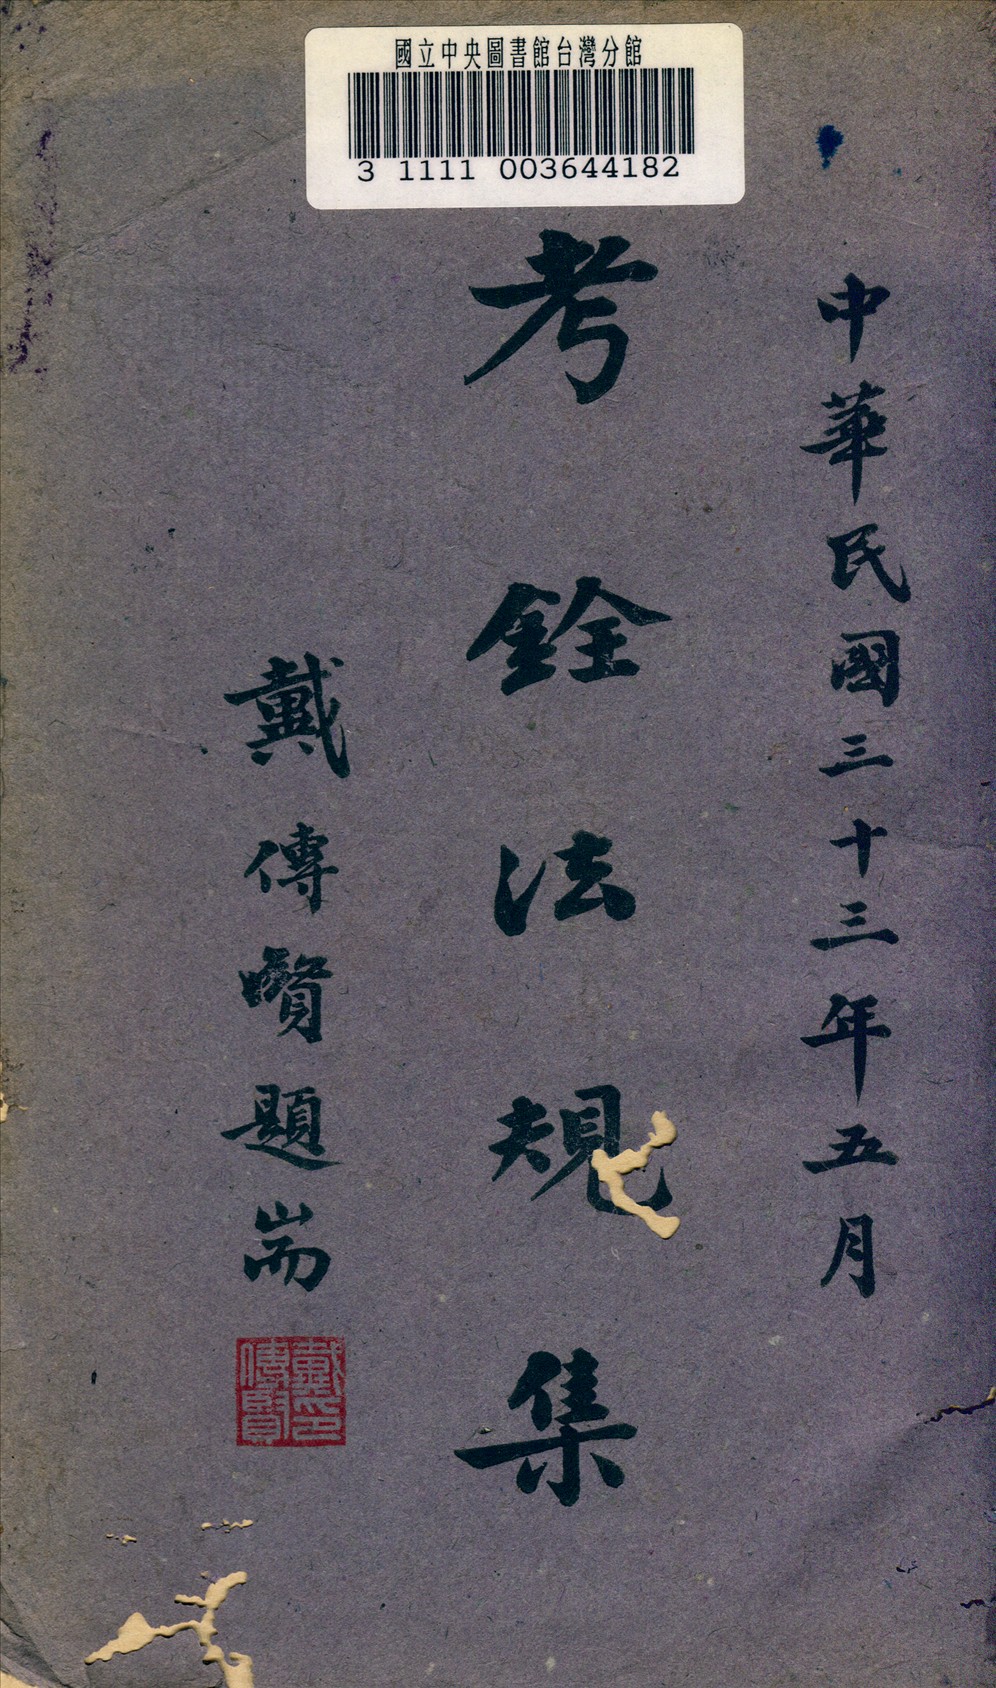 國立中央圖書館台灣分館
3 1111 003644182
中華民國三十三年五月
考銓法規集
戴傳賢題耑
戴傳賢印